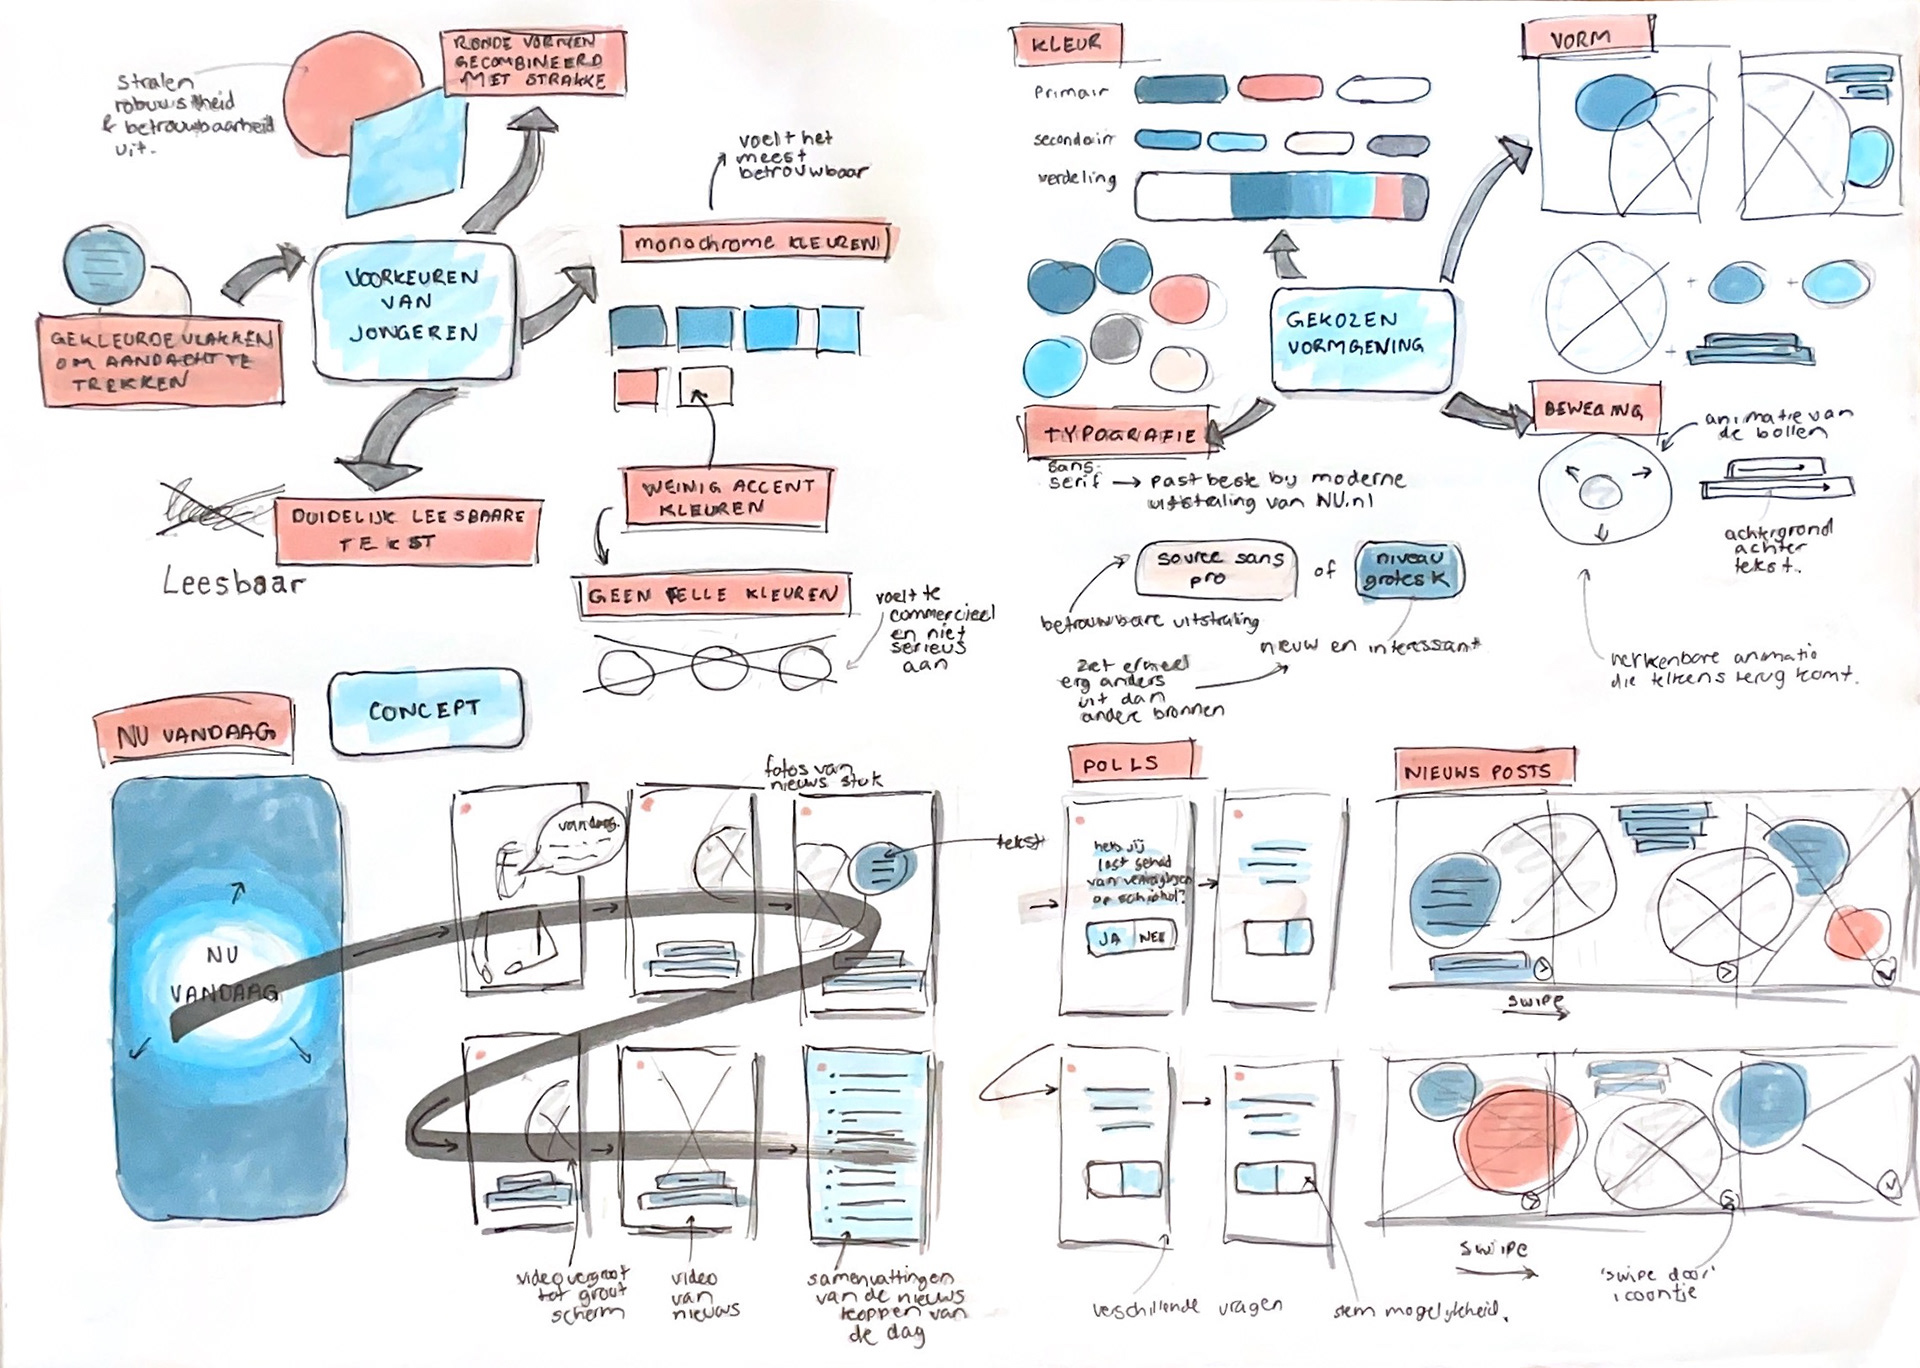 Stralen
robuustheid
& betrouwbaarheid
uit.
RONDE VORMEN
GECOMBINEERD
MET STRAKKE
voelt het
meest
betrouwbaar
monochrome KLEUREN
VOORKEUREN
VAN
JONGEREN
GEKLEURDE VLAKKEN
OM AANDACHT TE
TREKKEN
DUIDELIJK LEESBARE
TEKST
Leesbaar
WEINIG ACCENT
KLEUREN
GEEN FELLE KLEUREN
voelt te
commercieel
en niet
serieus
aan
KLEUR
Primair
secondair
verdeling
VORM
GEKOZEN
VORMGEVING
TYPOGRAFIE
sans
serif → past beste bij moderne
uitstraling van NU.nl
source sans
pro
of
niveau
grotesk
betrouwbare uitstraling
nieuw en interessant
ziet er heel
erg anders
uit dan
andere bronnen
BEWEGING
animatie van
de bollen
achtergrond
achter
tekst.
herkenbare animatie
die telkens terug komt.
CONCEPT
NU VANDAAG
NU
VANDAAG
vandaag
fotos van
nieuws stuk
tekst
video vergroot
tot groot
scherm
video
van
nieuws
samenvattingen
van de nieuws
koppen van
de dag
POLLS
heb jij
last gehad
van vertragingen
op schiphol?
JA NEE
verschillende vragen
stem mogelijkheid.
NIEUWS POSTS
SWIPE
SWIPE
'swipe door'
icoontje